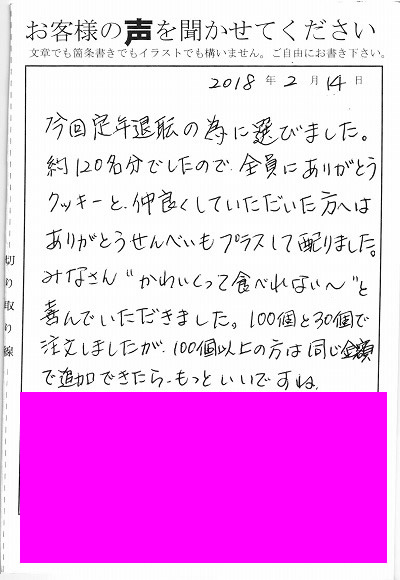 お客様の声を聞かせてください
文章でも箇条書きでもイラストでも構いません。ご自由にお書き下さい。
2018年2月14日
今回定年退職の為に選びました。
約120名分でしたので、全員にありがとう
クッキーと、仲良くしていただいた方へは
ありがとうせんべいもプラスして配りました。
みなさん“かわいくって食べれない〜”と
喜んでいただきました。100個と30個で
注文しましたが、100個以上の方は同じ金額
で追加できたら、もっといいですね。
切り取り線